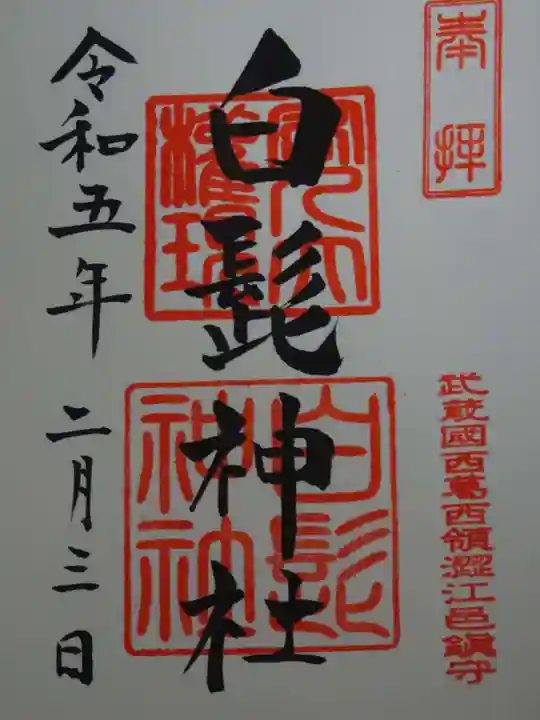 奉拝
武蔵國西葛西領澀江邑鎮守
白髭神社
白髭神社
令和五年 二月三日